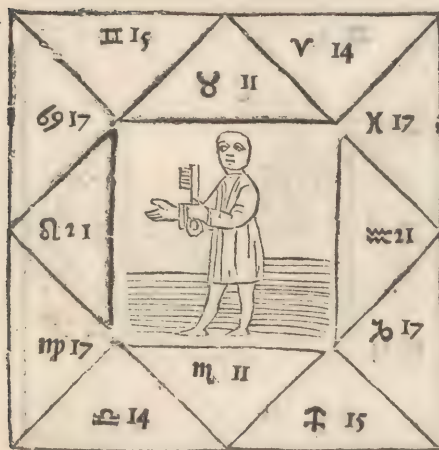 ♊ 15
♈ 14
♉ 11
♋ 17
♓ 17
♌ 21
♒ 21
♍ 17
♑ 17
♏ 11
♎ 14
♐ 15